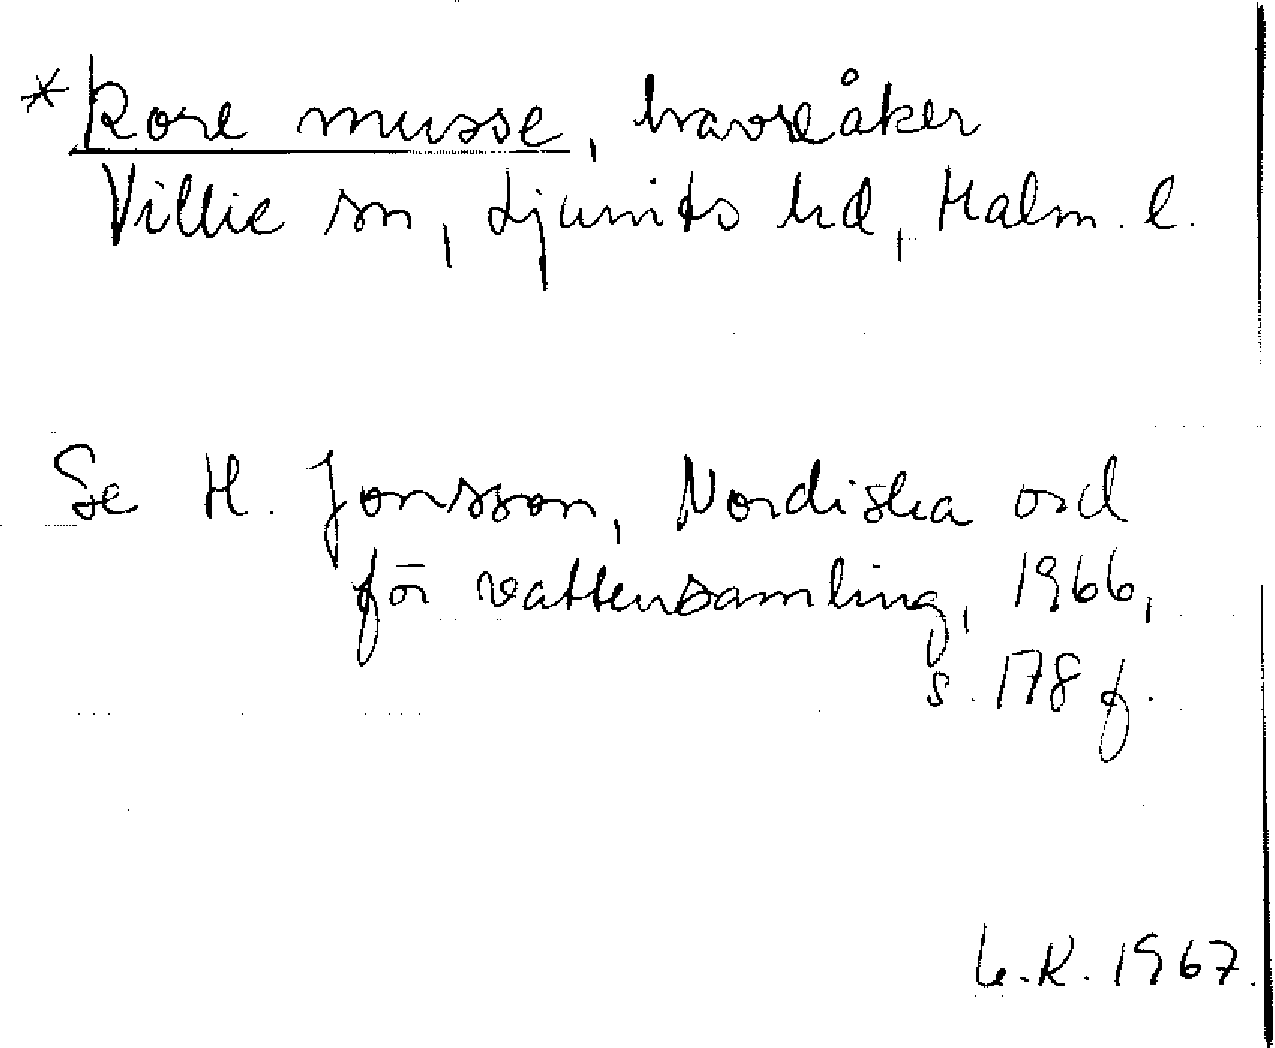 *kore musse, havreåker
Villie sn, Ljunits hd, Malm. l.
Se H. Jonsson, Nordiska ord
för vattensamling, 1966,
s. 178 f.
G.K. 1967.